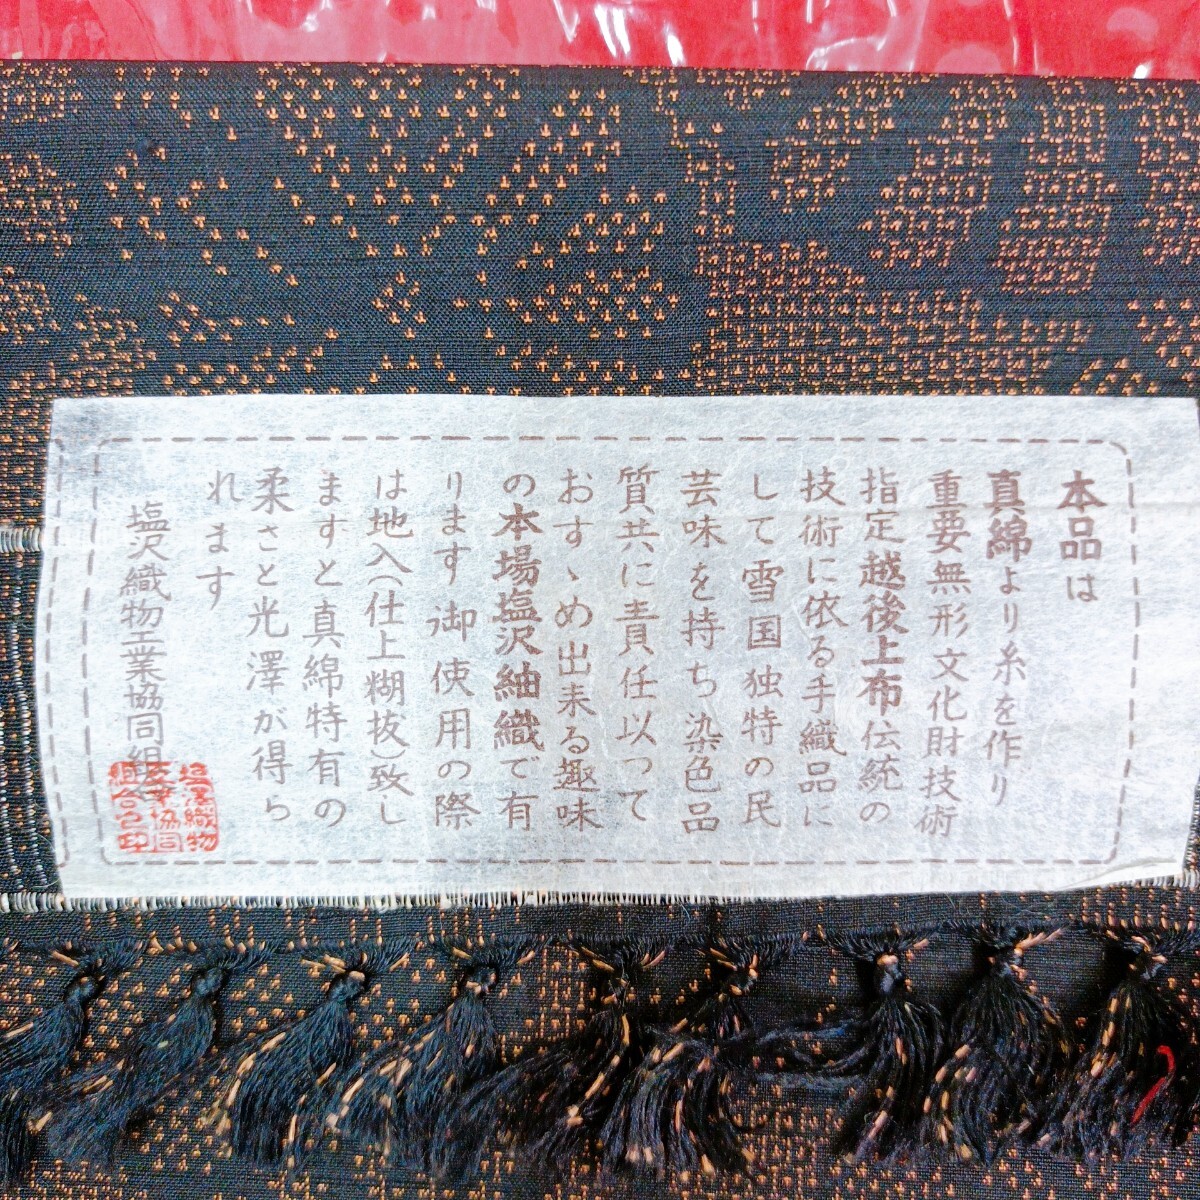 本品は
真綿より糸を作り
重要無形文化財技術
指定越後上布伝統の
技術に依る手織品に
して雪国独特の民
芸味を持ち染色品
質共に責任以って
おすゝめ出来る趣味
の本場塩沢紬織で有
ります御使用の際
は地入(仕上糊抜)致し
ますと真綿特有の
柔さと光澤が得ら
れます
塩沢織物工業協同組合
塩沢織物
工業協同
組合之印